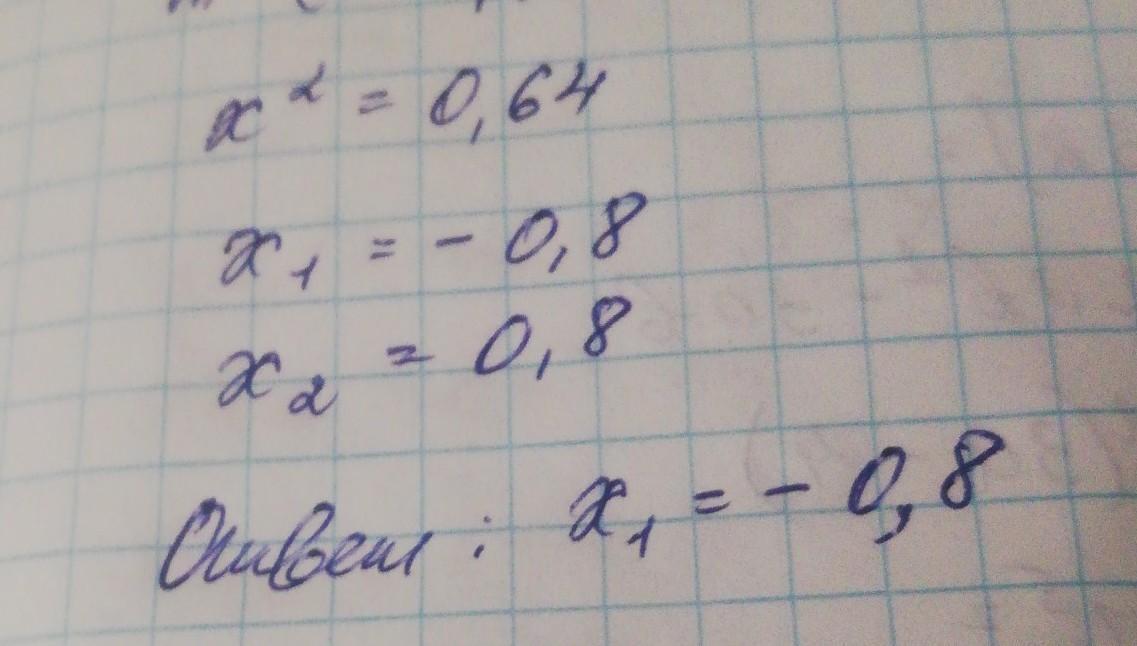 x² = 0,64
x₁ = - 0,8
x₂ = 0,8
Ответ : x₁ = - 0,8